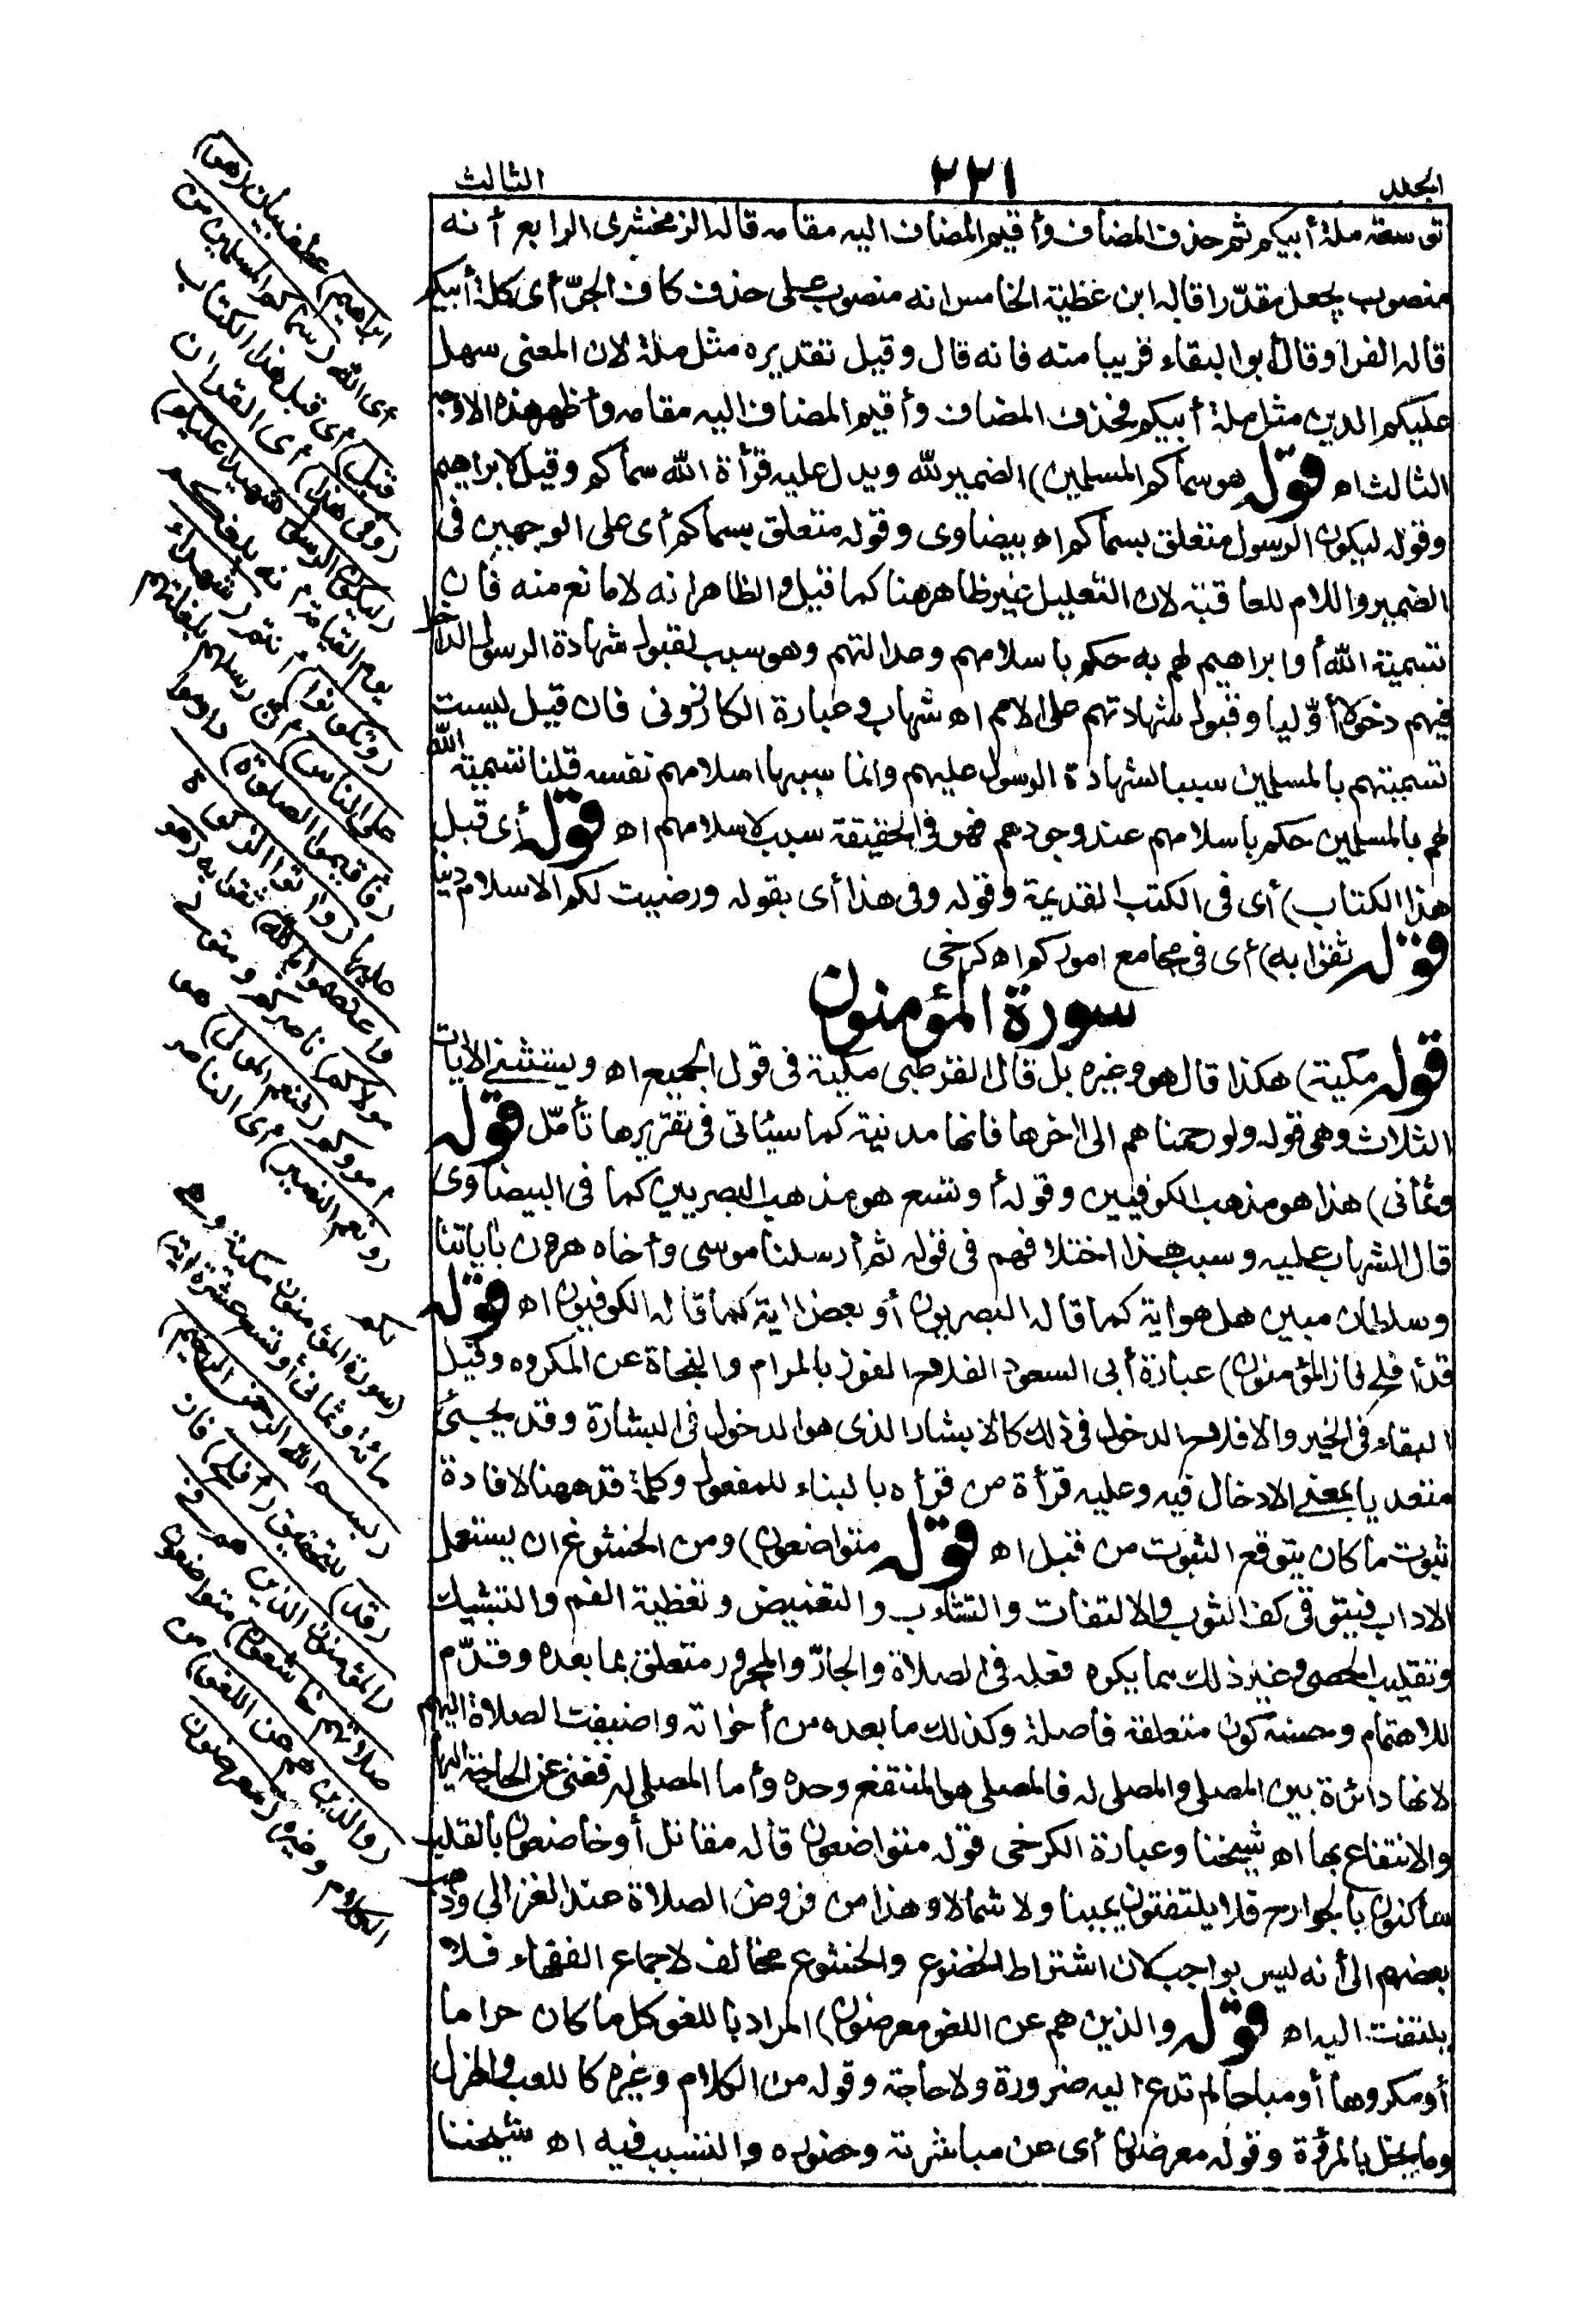 الجلد
٢٢١
الثالث
توسعة ملة أبيكم ثم حذف المضاف وأقيم المضاف اليه مقامه قاله الزمخشرى الرابع أنه
منصوب بجعل مقدّرا قاله ابن عطية الخامس انه منصوب على حذف كاف الجرّ أى كملة أبيكم
قاله الفرا وقال أبو البقاء قريبا منه فانه قال وقيل تقديره مثل ملة لان المعنى سهل
عليكم الدين مثل ملة أبيكم فحذف المضاف وأقيم المضاف اليه مقامه وأظهر هذه الاوجه
الثالث اه قوله هو سماكم المسلمين) الضمير لله ويدل عليه قرأة الله سماكم وقيل لابراهيم
وقوله ليكون الرسول متعلق بسماكم اه بيضاوى وقوله متعلق بسماكم أى على الوجهين فى
الضمير واللام للعاقبة لان التعليل غير ظاهر هنا كما قيل والظاهر انه لا مانع منه فان
تسمية الله أو ابراهيم لهم به حكم باسلامهم وعدالتهم وهو سبب لقبول شهادة الرسول الداخل
فيهم دخولا أوّليا وقبول شهادتهم على الامم اه شهاب وعبارة الكازرونى فان قيل ليست
تسميتهم بالمسلمين سببا لشهادة الرسول عليهم وانما سببها اسلامهم نفسه قلنا تسمية الله
لهم بالمسلمين حكم باسلامهم عند وجودهم فهو فى الحقيقة سبب لاسلامهم اه قوله أى قبل
هذا الكتاب) أى فى الكتب القديمة وقوله وفى هذا أى بقوله ورضيت لكم الاسلام دينا
قوله ثقوا به) أى فى مجامع اموركم اه كرخى
سورة المؤمنون
قوله مكية) هكذا قال هو وغيره بل قال القرطبى مكية فى قول الجميع اه ويستثنى الآيات
الثلاث وهى قوله ولو رحمناهم الى اخرها فانها مدنية كما سيأتى فى تقريرها تأمّل قوله
وثمانى) هذا هو مذهب الكوفيين وقوله أو تسع هو مذهب البصريين كما فى البيضاوى
قال الشهاب عليه وسبب هذا اختلافهم فى قوله ثم أرسلنا موسى وأخاه هرون باياتنا
وسلطان مبين هل هو اية كما قاله البصريون أو بعض اية كما قاله الكوفيون اه قوله
قد أفلح فاز المؤمنون) عبارة أبى السعود الفلاح الفوز بالمرام والنجاة عن المكروه وقيل
البقاء فى الخير والافلاح الدخول فى ذلك كالابشار الذى هو الدخول فى البشارة وقد يجئ
متعديا بمعنى الادخال فيه وعليه قرأة من قرأه بالبناء للمفعول وكلمة قد ههنا لافادة
ثبوت ما كان يتوقع الثبوت من قبل اه قوله متواضعون) ومن الخشوع ان يستعمل
الاداب فيتوقى كف الثوب والالتفات والتثاءب والتغميض وتغطية الفم والتشبيك
وتقليب الحصى وغير ذلك مما يكره فعله فى الصلاة والجارّ والمجرور متعلق بما بعده وقدّم
للاهتمام وحسنه كون متعلقه فاصلة وكذلك ما بعده من أخواته واضيفت الصلاة اليهم
لانها دائرة بين المصلى والمصلى له فالمصلى هو المنتفع وحده وأما المصلى له فغنى عن الحاجة اليها
والانتفاع بها اه شيخنا وعبارة الكرخى قوله متواضعون قاله مقاتل أو خاضعون بالقلب
ساكنون بالجوارح فلا يلتفتون يمينا ولا شمالا وهذا من فروض الصلاة عند الغزالى وذهب
بعضهم الى أنه ليس بواجب لان اشتراط الخضوع والخشوع مخالف لاجماع الفقهاء فلا
يلتفت اليه اه قوله والذين هم عن اللغو معرضون) المراد باللغو كل ما كان حراما
أو مكروها أو مباحا لم تدع اليه ضرورة ولا حاجة وقوله من الكلام وغيره كاللعب والهزل
وما يخل بالمروّة وقوله معرضون أى عن مباشرته وحضوره والتسبب فيه اه شيخنا
ابراهيم) عطف بيان (هو)
أى الله (سماكم المسلمين من
قبل) أى قبل هذا الكتاب
(وفى هذا) أى القران
(ليكون الرسول شهيدا عليكم)
يوم القيامة أنه بلغكم
(وتكونوا) أنتم (شهداء
على الناس) أن رسلهم بلغتهم
(فاقيموا الصلوة) داوموا
عليها (واتوا الزكوة
واعتصموا بالله) ثقوا به (هو
مولاكم) ناصركم ومتولى
أموركم (فنعم المولى) هو
(ونعم النصير) أى الناصر
لكم
(سورة المؤمنون مكية وهى
مائة وثمانى أو تسع عشرة اية)
(بسم الله الرحمن الرحيم)
(قد) للتحقيق (أفلح) فاز
(المؤمنون الذين هم فى
صلاتهم خاشعون) متواضعون
(والذين هم عن اللغو) من
الكلام وغيره (معرضون